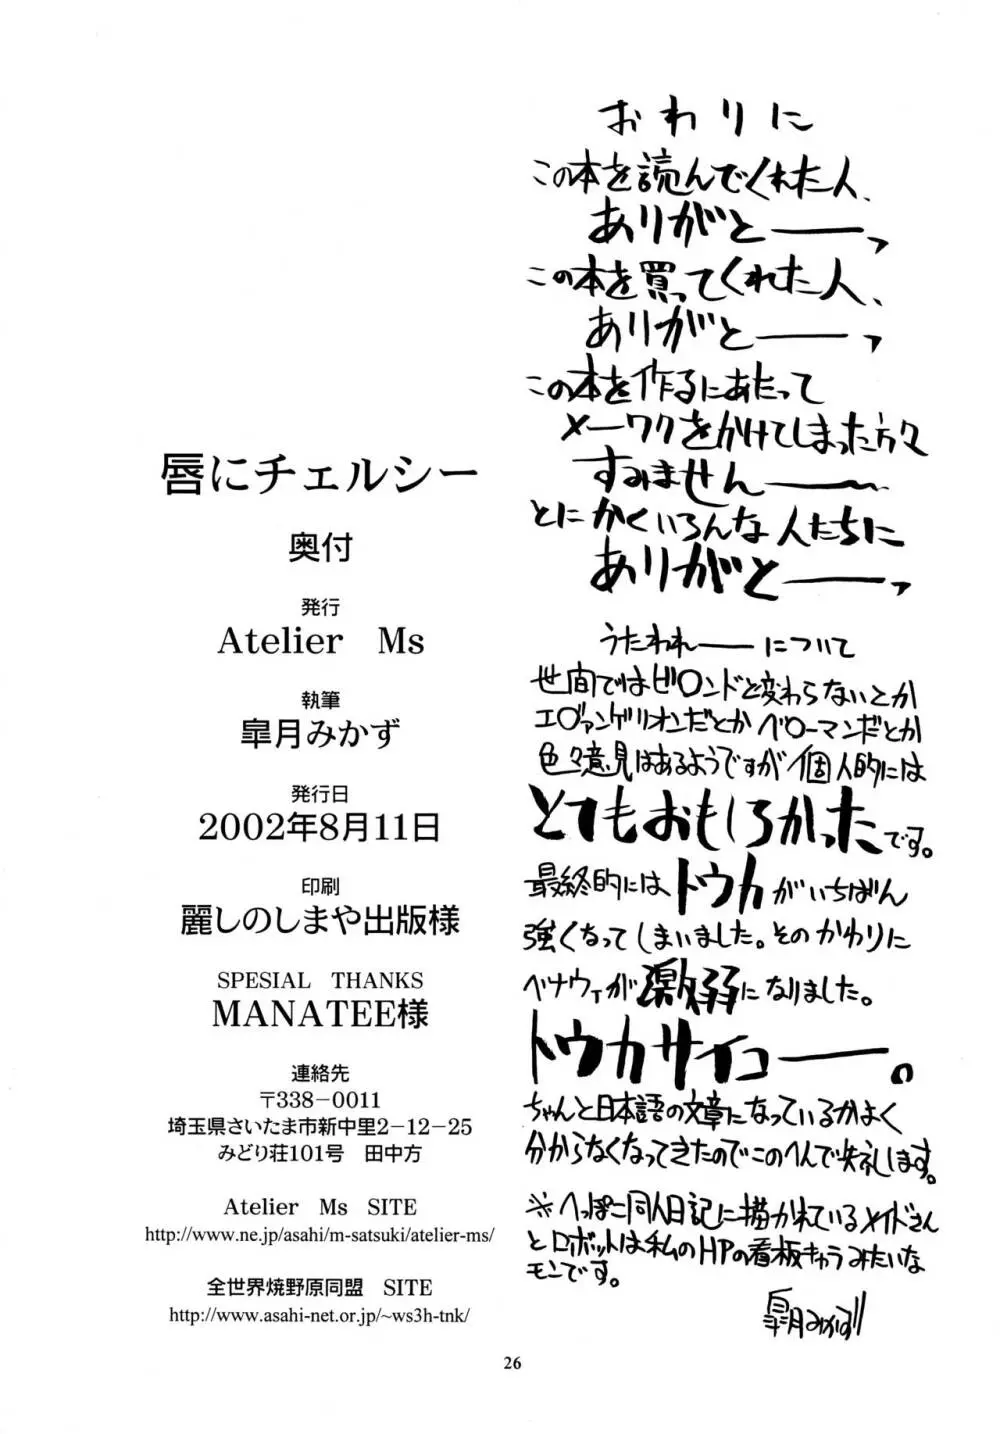 おわりに
この本を読んでくれた人、
ありがとーーっ
この本を買ってくれた人、
ありがとーーっ
この本を作るにあたって
メーワクをかけてしまった方々
すみませんーー
とにかくいろんな人たちに
ありがとーーっ
うたわれーーについて
世間ではビ○ンドと変わらないとか
エ○ァンゲリオンだとかベ○ーマンだとか
色々意見はあるようですが個人的には
とてもおもしろかったです。
最終的にはトウカがいちばん
強くなってしまいました。そのかわりに
ベナウィが激弱になりました。
トウカサイコーー。
ちゃんと日本語の文章になっているかよく
分からなくなってきたのでこのへんで失礼します。
※へっぽこ同人日記に描かれているメイドさん
とロボットは私のHPの看板キャラみたいな
モンです。
皐月みかず
唇にチェルシー
奥付
発行
Atelier Ms
執筆
皐月みかず
発行日
2002年8月11日
印刷
麗しのしまや出版様
SPESIAL THANKS
MANATEE様
連絡先
〒338-0011
埼玉県さいたま市新中里2-12-25
みどり荘101号 田中方
Atelier Ms SITE
http://www.ne.jp/asahi/m-satsuki/atelier-ms/
全世界焼野原同盟 SITE
http://www.asahi-net.or.jp/~ws3h-tnk/
26